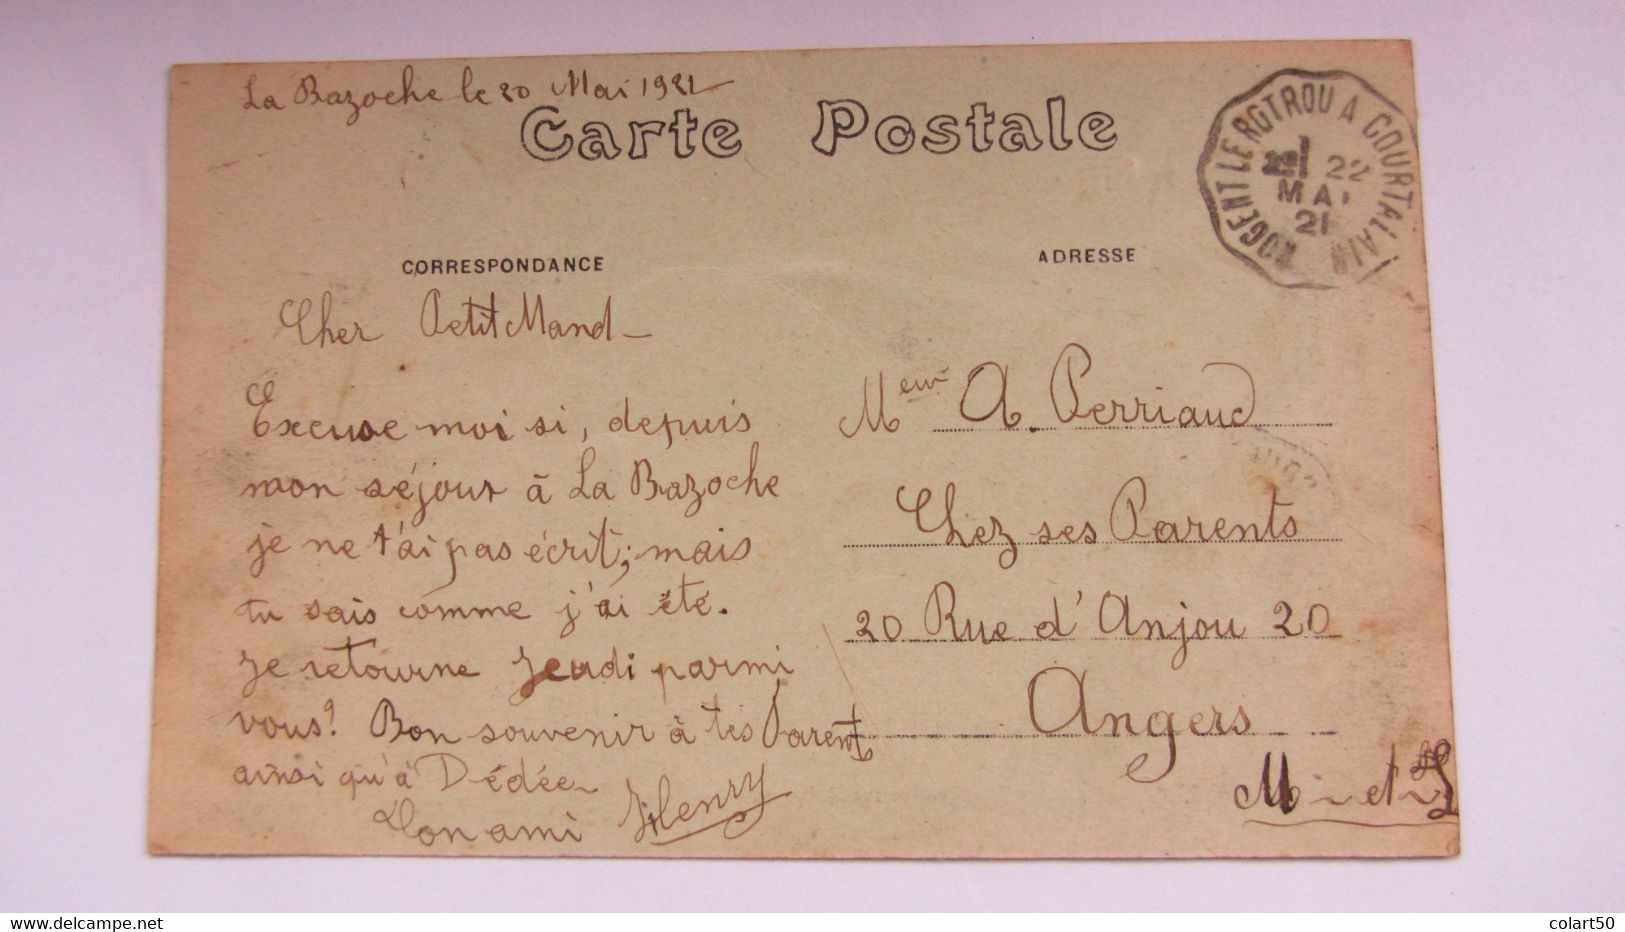 La Bazoche le 20 Mai 1921
Carte Postale
NOGENT LE ROTROU A COURTALAIN
22
MAI
21
CORRESPONDANCE
ADRESSE
Cher Petit Mand-
Excuse moi si, depuis
mon séjour à La Bazoche
je ne t'ai pas écrit; mais
tu sais comme j'ai été.
Je retourne Jeudi parmi
vous! Bon souvenir à tes Parents
ainsi qu'à Dédée
Ton ami Henry
Meur A. Perriaud
Chez ses Parents
20 Rue d'Anjou 20
Angers
M-et-L
www.delcampe.net
colart50